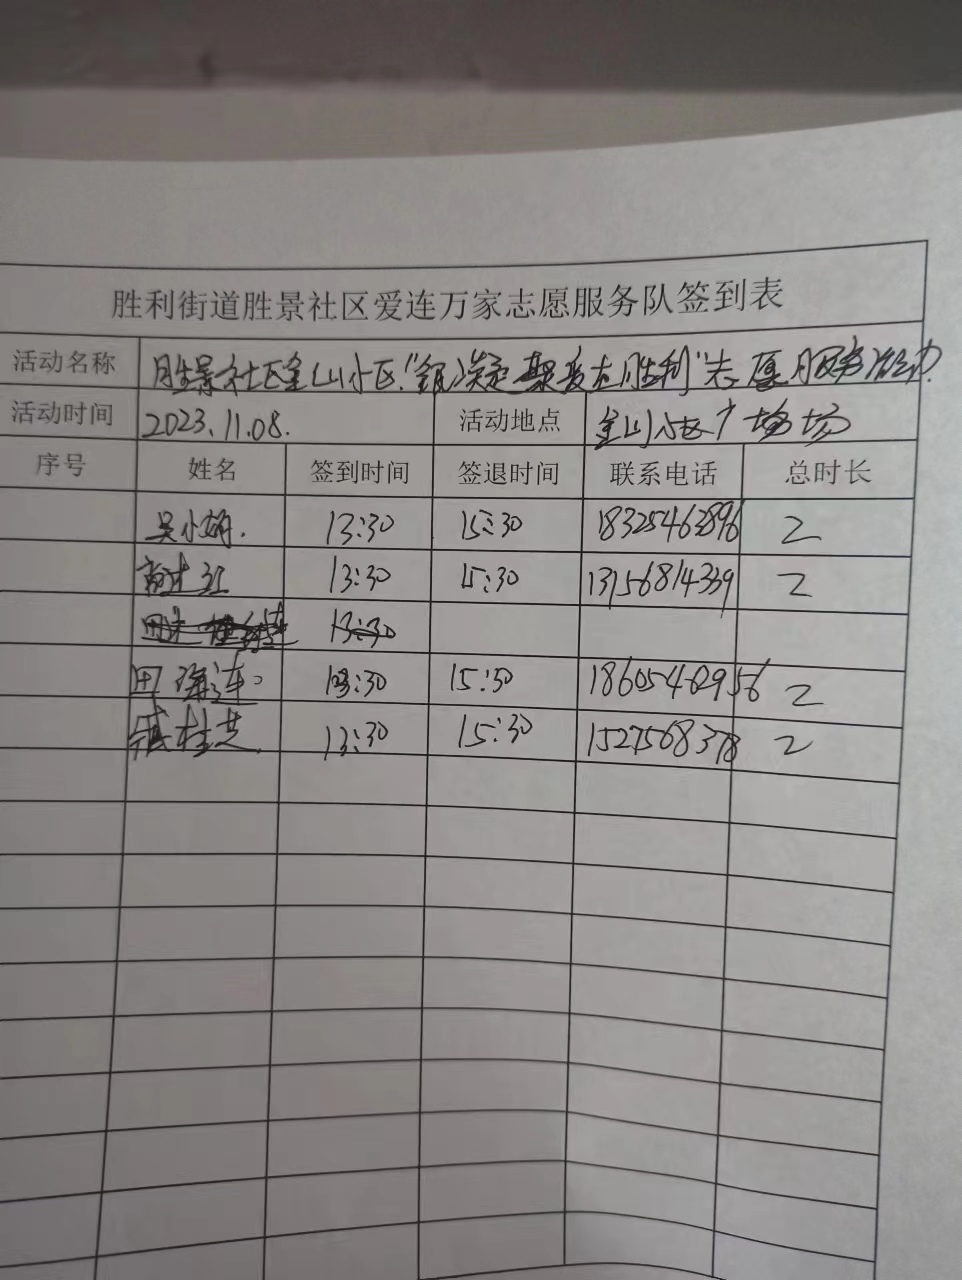 胜利街道胜景社区爱连万家志愿服务队签到表
活动名称 胜景社区金山小区"银凝聚爱在胜利"志愿服务活动
活动时间 2023.11.08. 活动地点 金山小区广场
序号 姓名 签到时间 签退时间 联系电话 总时长
吴小娟. 13:30 15:30 18325463896 2
13:30 15:30 13156814339 2
13:30
田海连 13:30 15:30 18605462956 2
桂芝 13:30 15:30 1527568378 2